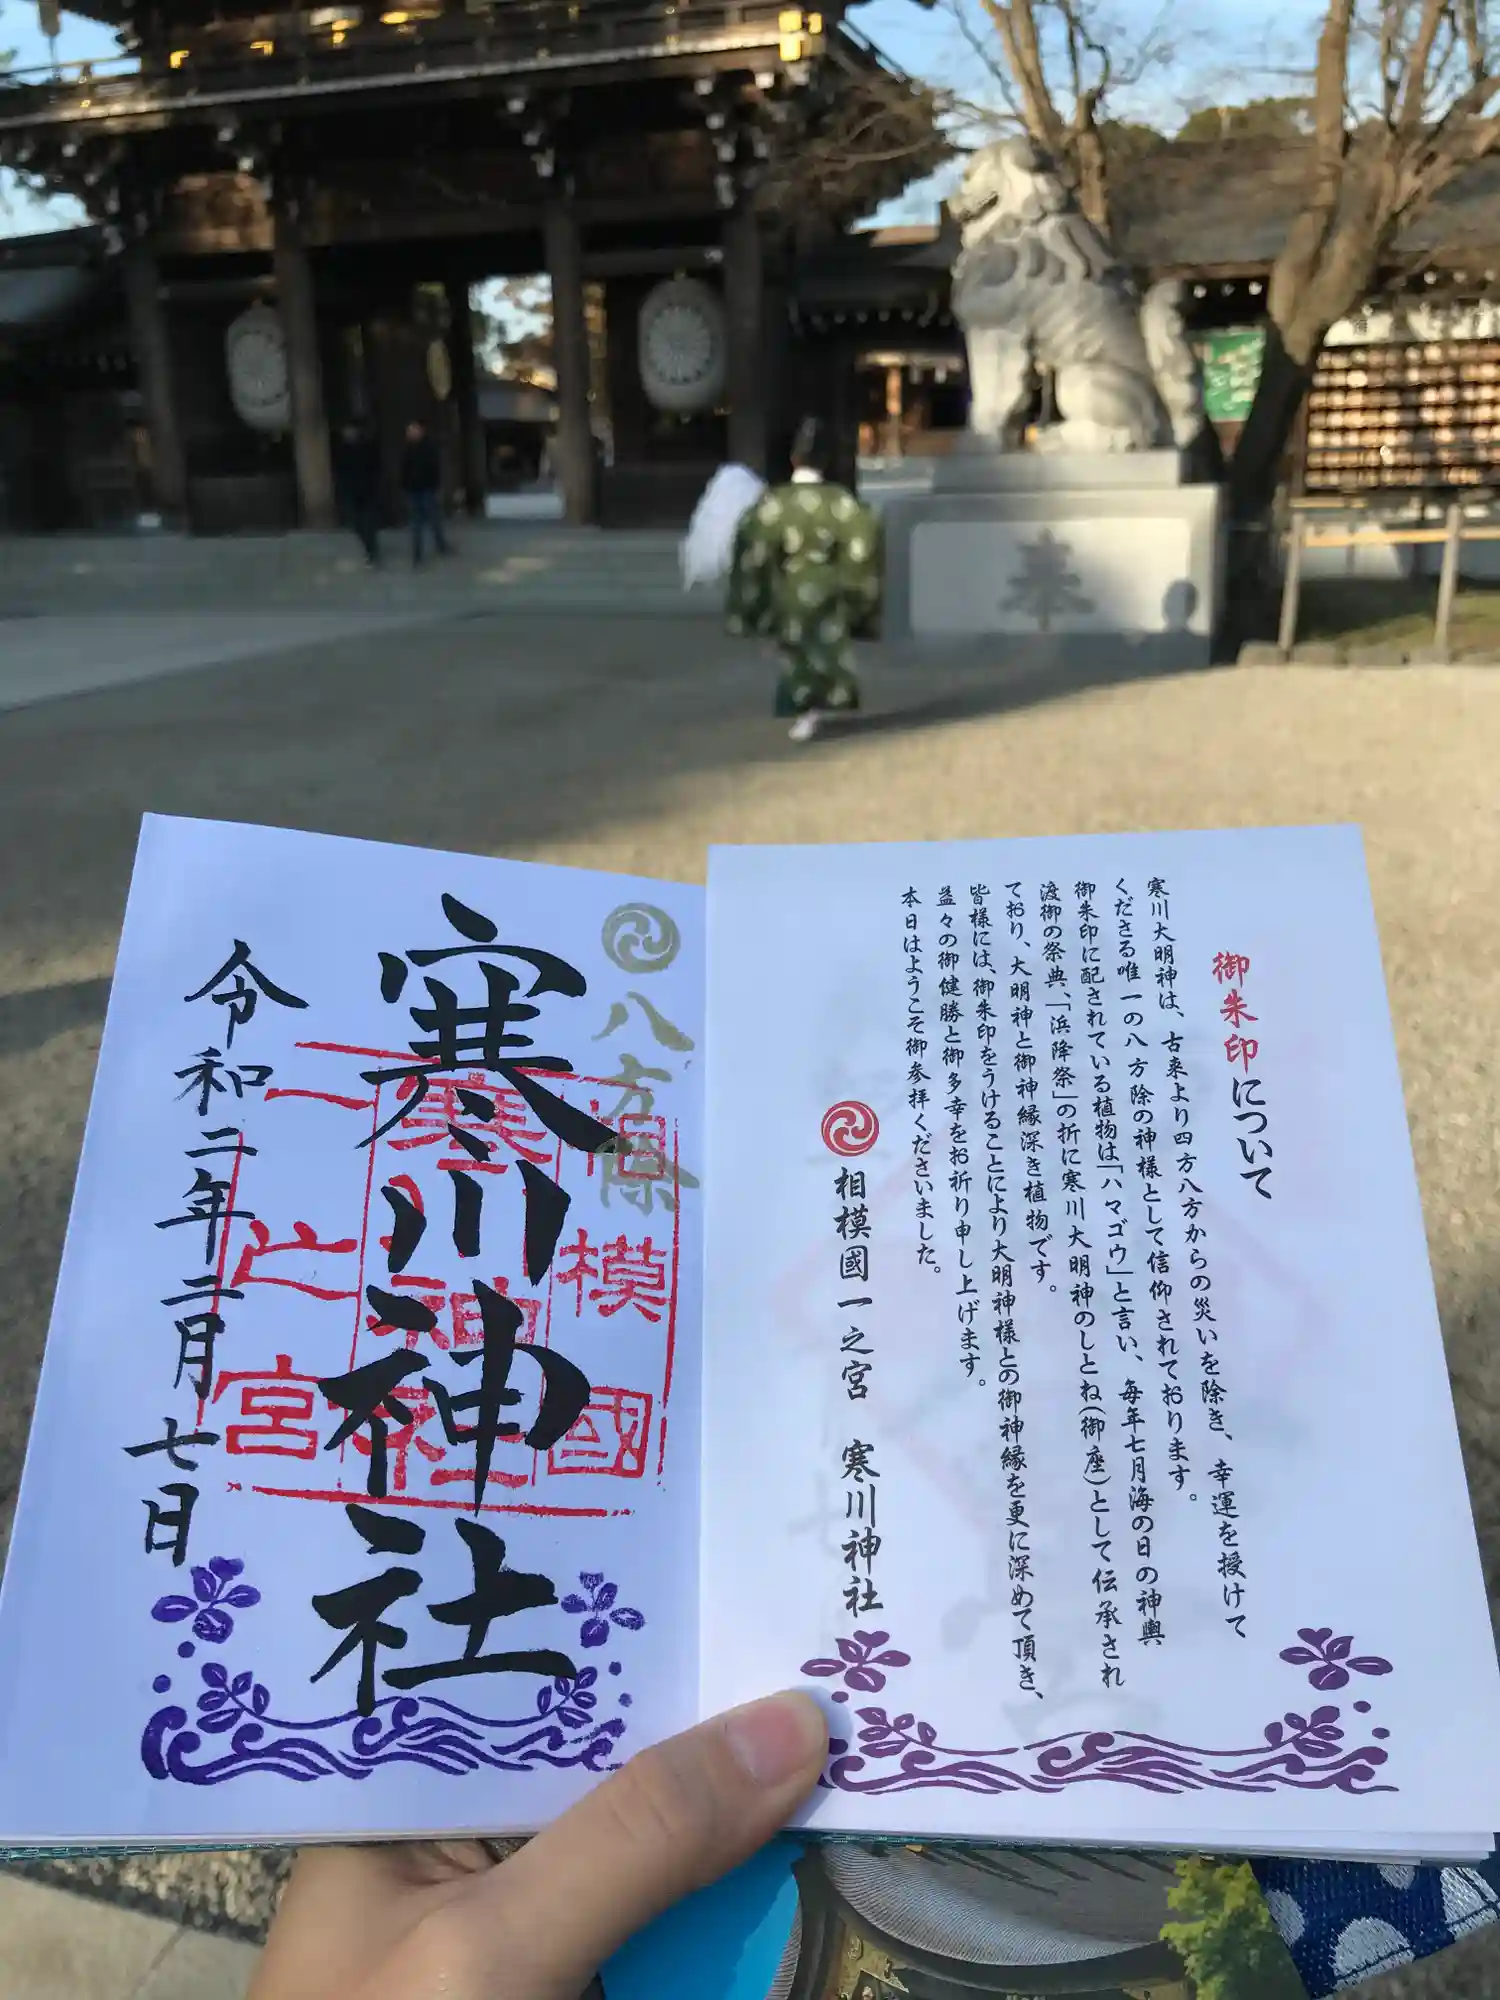 御朱印について
寒川大明神は、古来より四方八方からの災いを除き、幸運を授けて
くださる唯一の八方除の神様として信仰されております。
御朱印に配されている植物は「ハマゴウ」と言い、毎年七月海の日の神輿
渡御の祭典、「浜降祭」の折に寒川大明神のしとね(御座)として伝承され
ており、大明神と御神縁深き植物です。
皆様には、御朱印をうけることにより大明神様との御神縁を更に深めて頂き、
益々の御健勝と御多幸をお祈り申し上げます。
本日はようこそ御参拝くださいました。
相模國一之宮 寒川神社
八方除
相模國
寒川神社
一之宮
寒川神社
令和二年二月七日